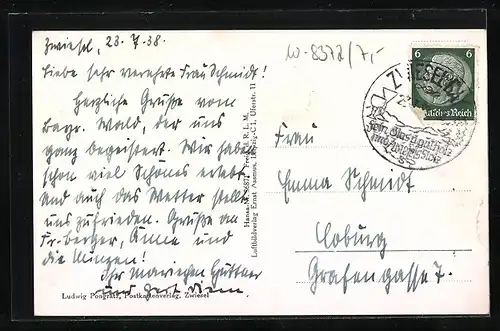 Zwiesel, 23.7.38.
Liebe sehr verehrte Frau Schmidt!
Herzliche Grüße vom
Bayr. Wald, der uns
ganz begeistert. Wir haben
schon viel Schönes erlebt
und auch das Wetter stellt
uns zufrieden. Grüße an
Fr. Berger, Änne und
die
Ihr Mariechen Hüttner
und Gert
Ludwig Pongratz, Postkartenverlag, Zwiesel
Luftbildverlag Ernst Assmus, Leipzig-C1, Ulrestr. 11
W-8372/7,-
6 6
Deutsches Reich
ZWIESEL
Frau
Emma Schmidt
Coburg
Grafengasse 7.